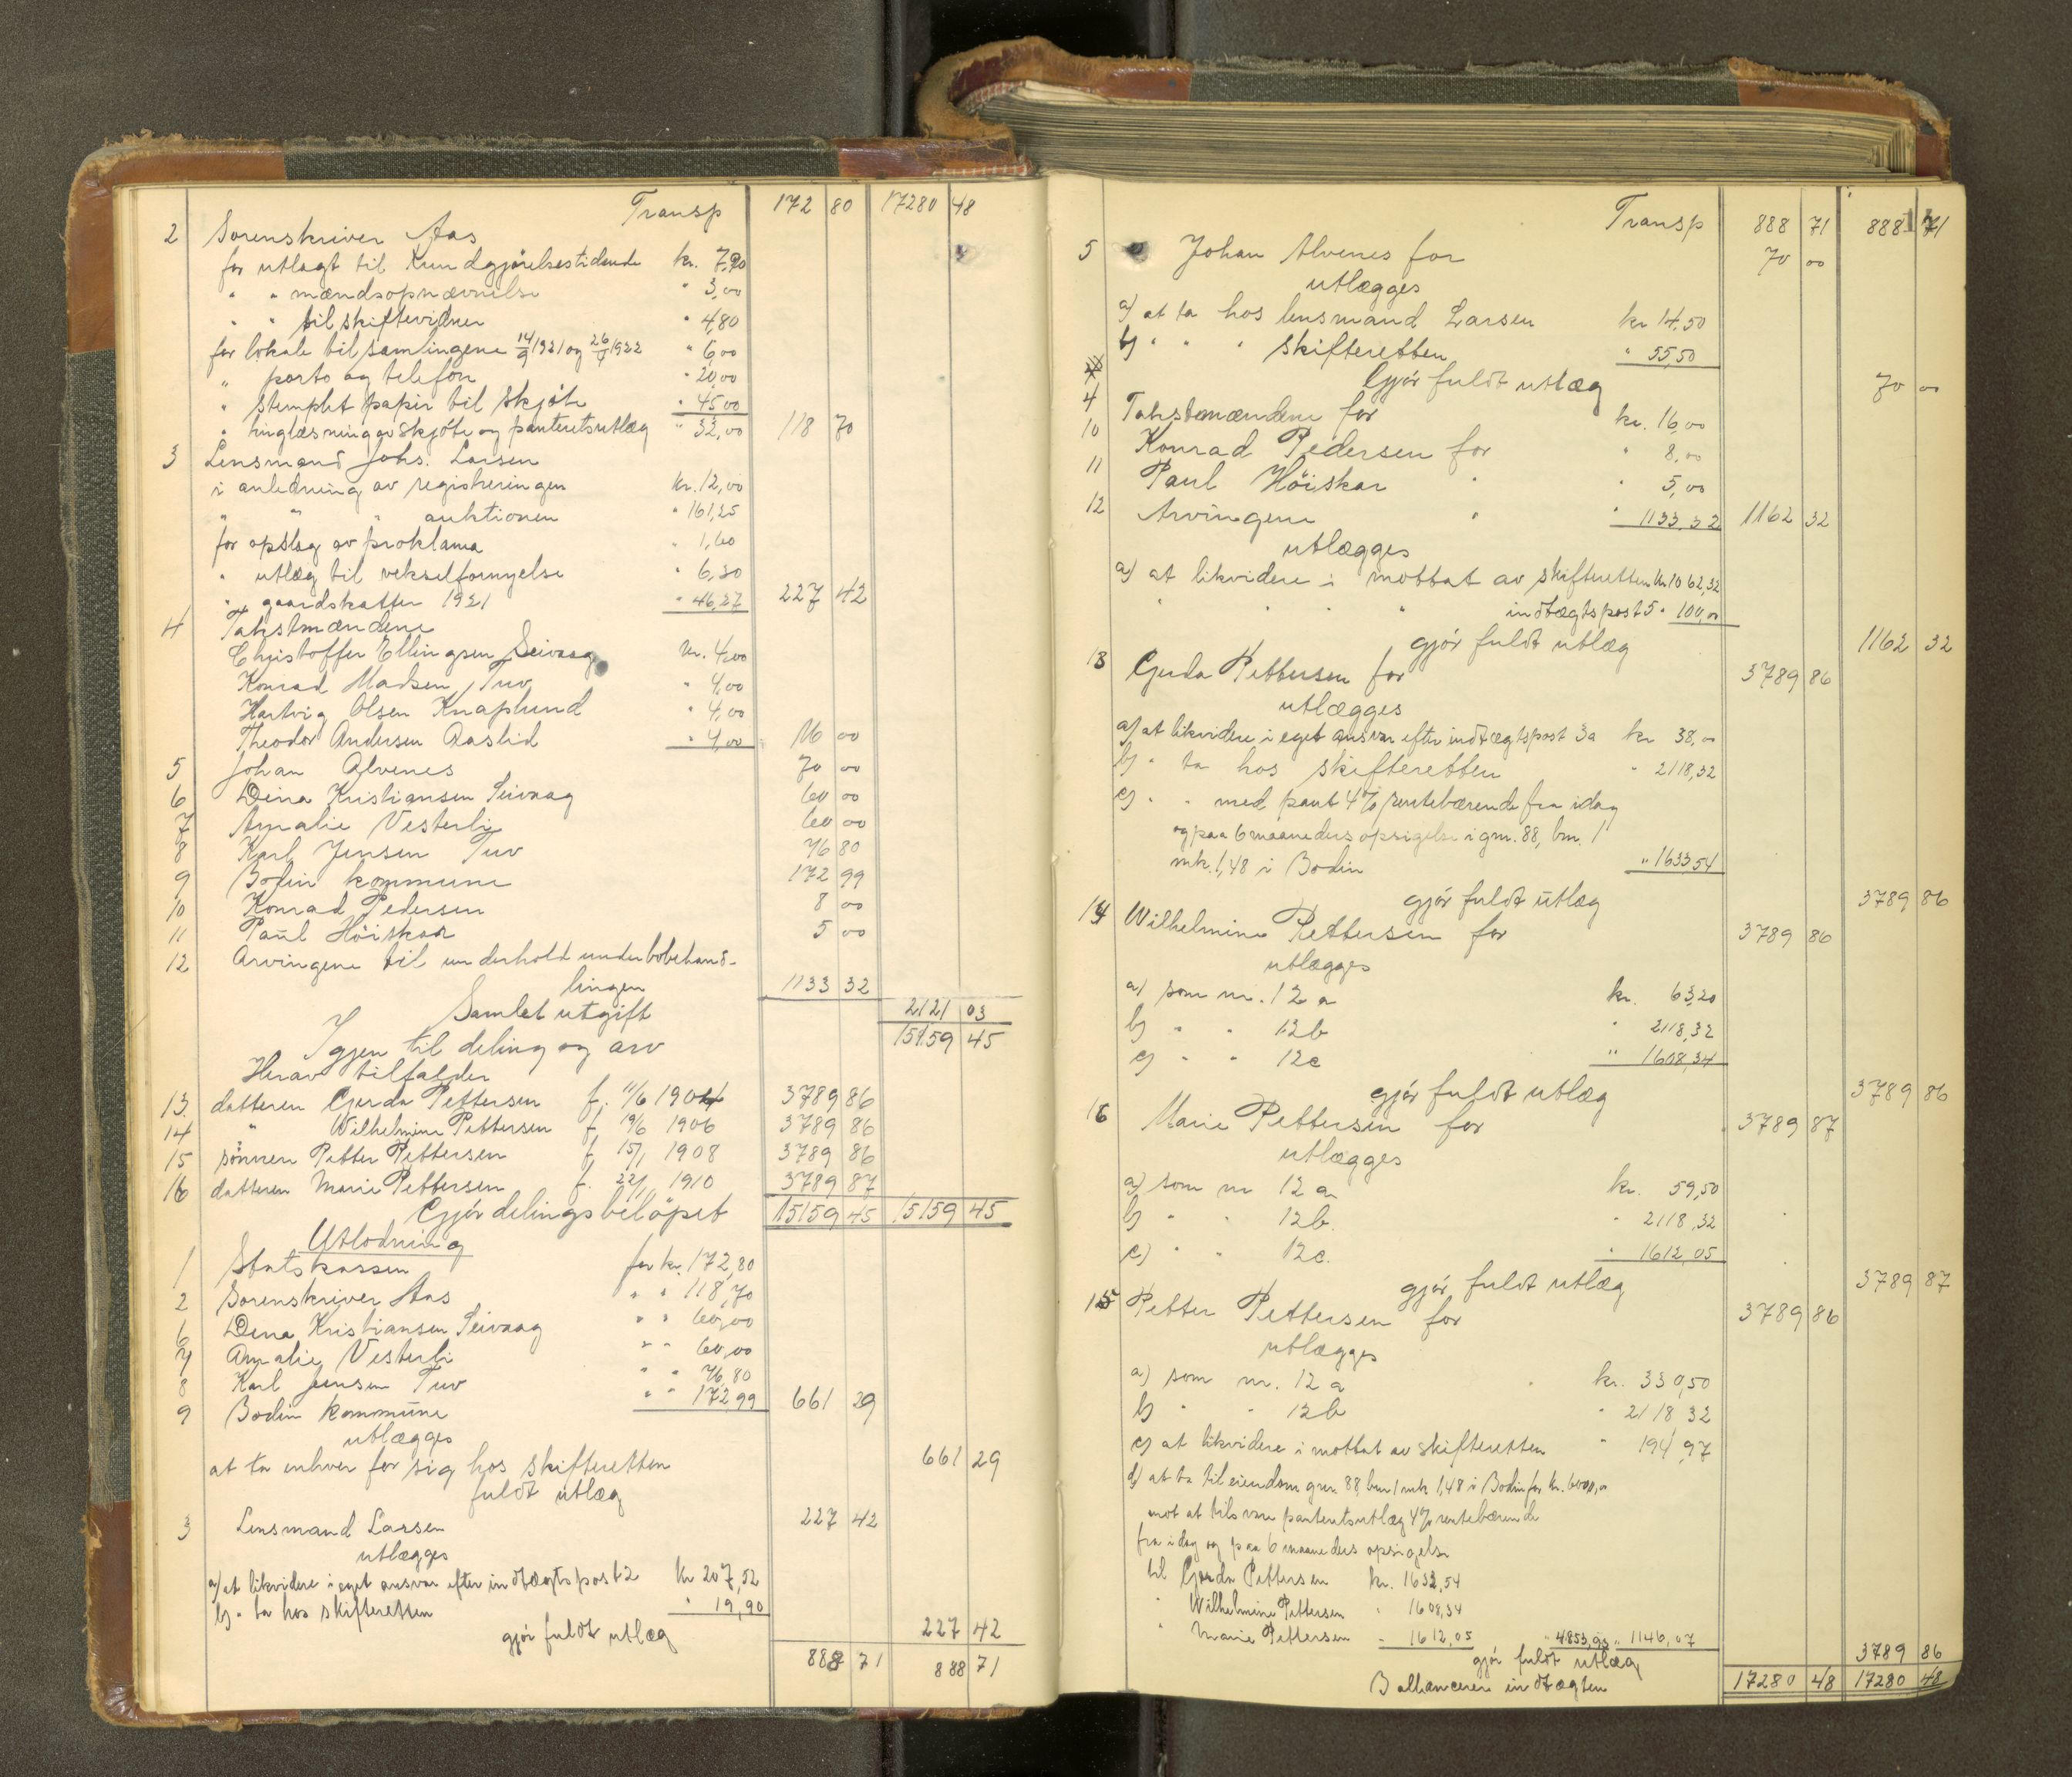 Transp 172 80 17280 48
2 Sorenskriver Aas
for utlagt til Kundgjørelsestidende kr. 7,90
" " mændsopnævnelse " 3,00
" " til skiftevidner " 4,80
for lokale til samlingene 14/9 1921 og 26/9 1922 " 6,00
" porto og telefon " 20,00
" stemplet papir til skjøte " 45,00
" tinglæsning av skjøte og panteretsutlæg " 32,00 118 70
3 Lensmand Johs. Larsen
i anledning av registreringen kr. 12,00
" " " auktionen " 161,25
for opslag av proklama " 1,60
" utlæg til vekselfornyelse " 6,30
" gaardskatter 1921 " 46,27 227 42
4 Takstmændene
Christoffer Ellingsen Seivaag kr. 4,00
Konrad Madsen Tuv " 4,00
Hartvig Olsen Knaplund " 4,00
Theodor Andersen Aaslid " 4,00 16 00
5 Johan Alvenes 70 00
6 Dina Kristiansen Seivaag 60 00
7 Amalie Vesterli 60 00
8 Karl Jensen Tuv 76 80
9 Bodin kommune 172 99
10 Konrad Pedersen 8 00
11 Paul Høiskar 5 00
12 Arvingene til underhold under bobehand-
lingen 1133 32
Samlet utgift 2121 03
Igjen til deling og arv 15159 45
Herav tilfalder
13. datteren Gjerda Pettersen f. 11/6 1904 3789 86
14 " Wilhelmine Pettersen f. 19/6 1906 3789 86
15 sønnen Petter Pettersen f. 15/1 1908 3789 86
16 datteren Marie Pettersen f. 22/1 1910 3789 87
Gjør delingsbeløpet 15159 45 15159 45
Utlodning
1 Statskassen for kr. 172,80
2 Sorenskriver Aas " " 118,70
6 Dina Kristiansen Seivaag " " 60,00
7 Amalie Vesterli " " 60,00
8 Karl Jensen Tuv " " 76,80
9 Bodin kommune " " 172,99 661 29
utlægges
at ta enhver for sig hos skifteretten 661 29
fuldt utlæg
3 Lensmand Larsen 227 42
utlægges
a) at likvidere i eget ansvar efter indtægtspost 2 kr 207,52
b) " ta hos skifteretten " 19,90
gjør fuldt utlæg 227 42
888 71 888 71
Transp 888 71 888 71
5 Johan Alvenes for 70 00
utlægges
a) at ta hos lensmand Larsen kr 14,50
b) " " " skifteretten " 55,50
Gjør fuldt utlæg 70 00
4 Takstmændene for kr. 16,00
10 Konrad Pedersen for " 8,00
11 Paul Høiskar " " 5,00
12 Arvingene " " 1133,32 1162 32
utlægges
a) at likvidere i mottat av skifteretten kr 1062,32
" " " " indtægtspost 5 " 100,00
gjør fuldt utlæg 1162 32
13 Gjerda Pettersen for 3789 86
utlægges
a) at likvidere i eget ansvar efter indtægtspost 3a kr 38,00
b) " ta hos skifteretten " 2118,32
c) " " med pant 4% rentebærende fra idag
og paa 6 maaneders opsigelse i gnr. 88, bnr. 1
mk. 1,48 i Bodin " 1633,54
gjør fuldt utlæg 3789 86
14 Wilhelmine Pettersen for 3789 86
utlægges
a) som nr. 12 a kr. 63,20
b) " " 12b " 2118,32
c) " " 12c " 1608,34
gjør fuldt utlæg 3789 86
16 Marie Pettersen for 3789 87
utlægges
a) som nr 12 a kr. 59,50
b) " " 12b. " 2118,32
c) " " 12c. " 1612,05
gjør fuldt utlæg 3789 87
15 Petter Pettersen for 3789 86
utlægges
a) som nr. 12 a kr. 330,50
b) " " 12b " 2118 32
c) at likvidere i mottat av skifteretten " 194,97
d) at ta til eiendom gnr. 88, bnr 1 mk 1,48 i Bodin for kr. 6000,00
mot at tilsvare panteretsutlæg 4% rentebærende
fra idag og paa 6 maaneders opsigelse
til Gjerda Pettersen kr. 1633,54
" Wilhelmine Pettersen " 1608,34
" Marie Pettersen " 1612,05 " 4853,93 " 1146,07
gjør fuldt utlæg 3789 86
Ballancerer indtægten 17280 48 17280 48